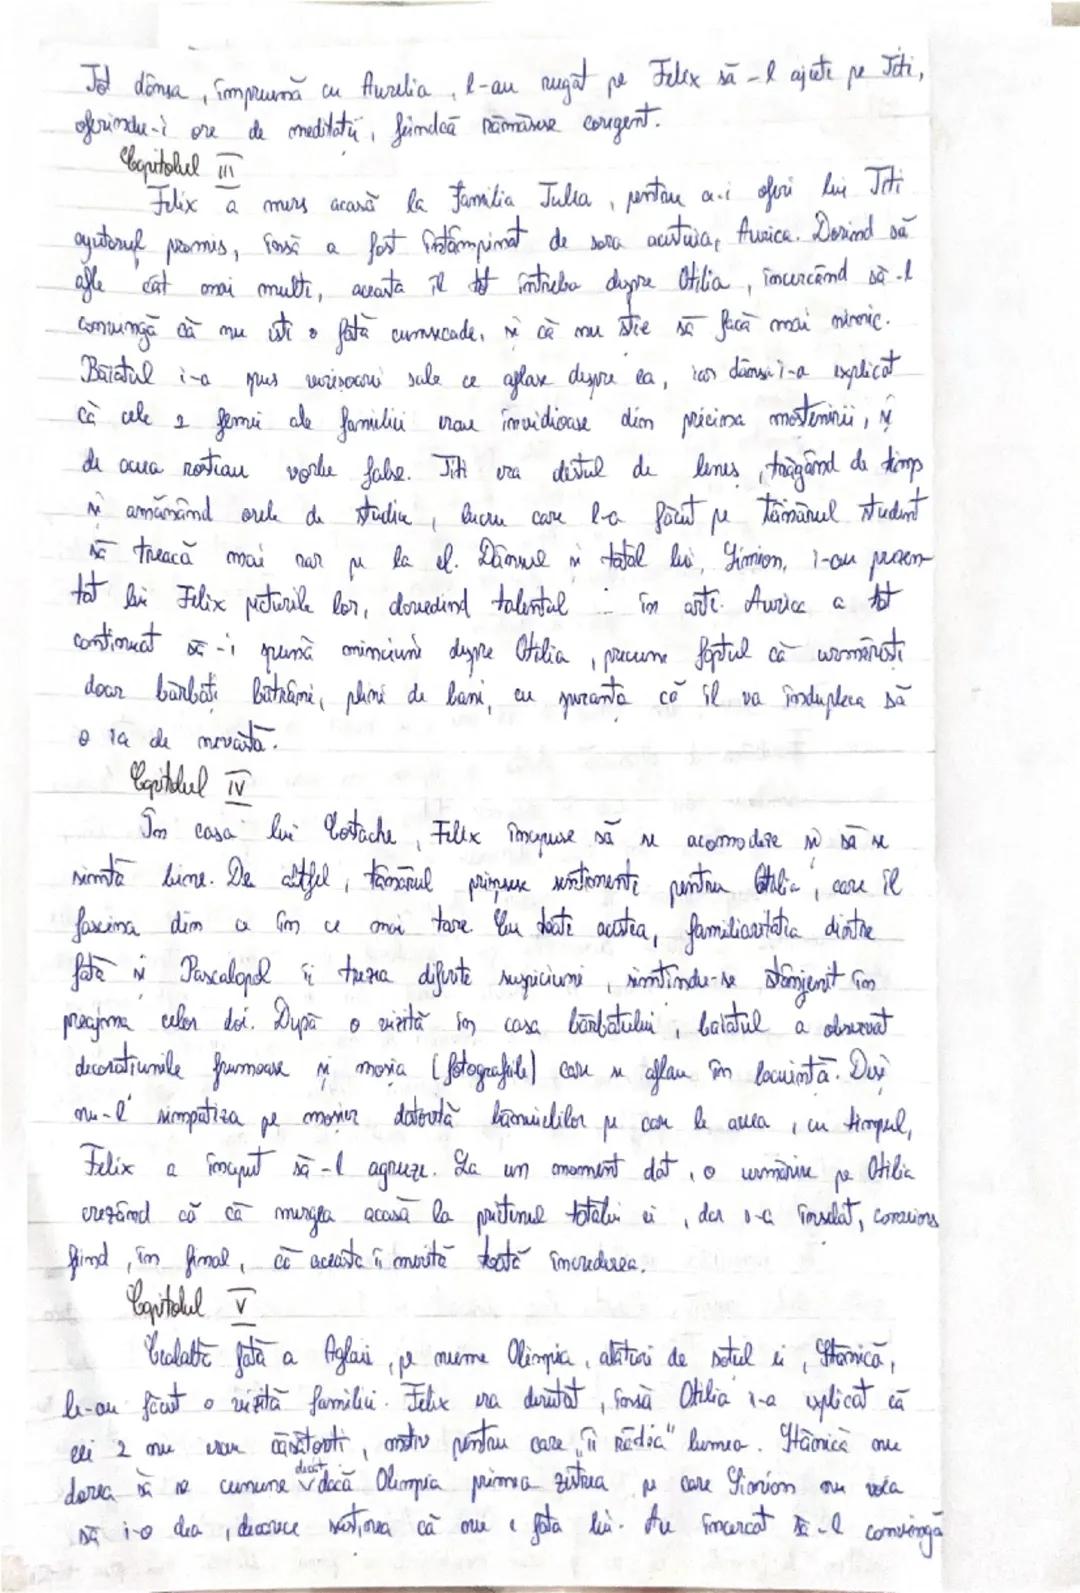 Tot dânsa, împreună cu Aurelia, l-au rugat pe Felix să-l ajute pe Titi,
oferindu-i ore de meditații, fiindcă rămăsese corigent.
Capitolul III
Felix a mers acasă la familia Tulea, pentru a-i oferi lui Titi
ajutorul promis, însă a fost întâmpinat de sora acestuia, Aurica. Dorind să
afle cât mai multe, aceasta îl tot întreba despre Otilia, încercând să-l
convingă că nu este o fată cumsecade, și că nu știe să facă mai nimic.
Băiatul i-a spus verișoarei sale ce aflase despre ea, iar dânsa i-a explicat
că cele 2 femei ale familiei erau invidioase din pricina moștenirii, și
de aceea rosteau vorbe false. Titi era destul de leneș, trăgând de timp
și amânând orele de studiu, lucru care l-a făcut pe tânărul student
să treacă mai rar pe la el. Dânsul și tatăl lui, Simion, i-au prezen-
tat lui Felix picturile lor, dovedind talentul în arte. Aurica a tot
continuat să-i spună minciuni despre Otilia, precum faptul că urmărește
doar bărbați bătrâni, plini de bani, cu speranța că îl va îndupleca să
o ia de nevastă.
Capitolul IV
În casa lui Costache, Felix începuse să se acomodeze și să se
simtă bine. De altfel, tânărul prinsese sentimente pentru Otilia, care îl
fascina din ce în ce mai tare. Cu toate acestea, familiaritatea dintre
fată și Pascalopol îi trezea diferite suspiciuni, simțindu-se stânjenit în
preajma celor doi. După o vizită în casa bărbatului, băiatul a observat
decorațiunile frumoase și moșia (fotografiile) care se aflau în locuință. Deși
nu-l simpatiza pe moșier datorită bănuielilor pe care le avea, cu timpul,
Felix a început să-l agreeze. La un moment dat, o urmărise pe Otilia
crezând că că mergea acasă la prietenul tatălui ei, dar s-a înșelat, conștient
fiind, în final, că aceasta îi merită toată încrederea.
Capitolul V
Cealaltă fată a Aglaei, pe nume Olimpia, alături de soțul ei, Stănică,
le-au făcut o vizită familiei. Felix era derutat, însă Otilia i-a explicat că
cei 2 nu erau căsătoriți, motiv pentru care „îi râdea” lumea. Stănică nu
dorea să se cunune decât dacă Olimpia primea zestrea pe care Simion nu voia
să i-o dea, deoarece susținea că nu e fata lui. Au încercat să-l convingă